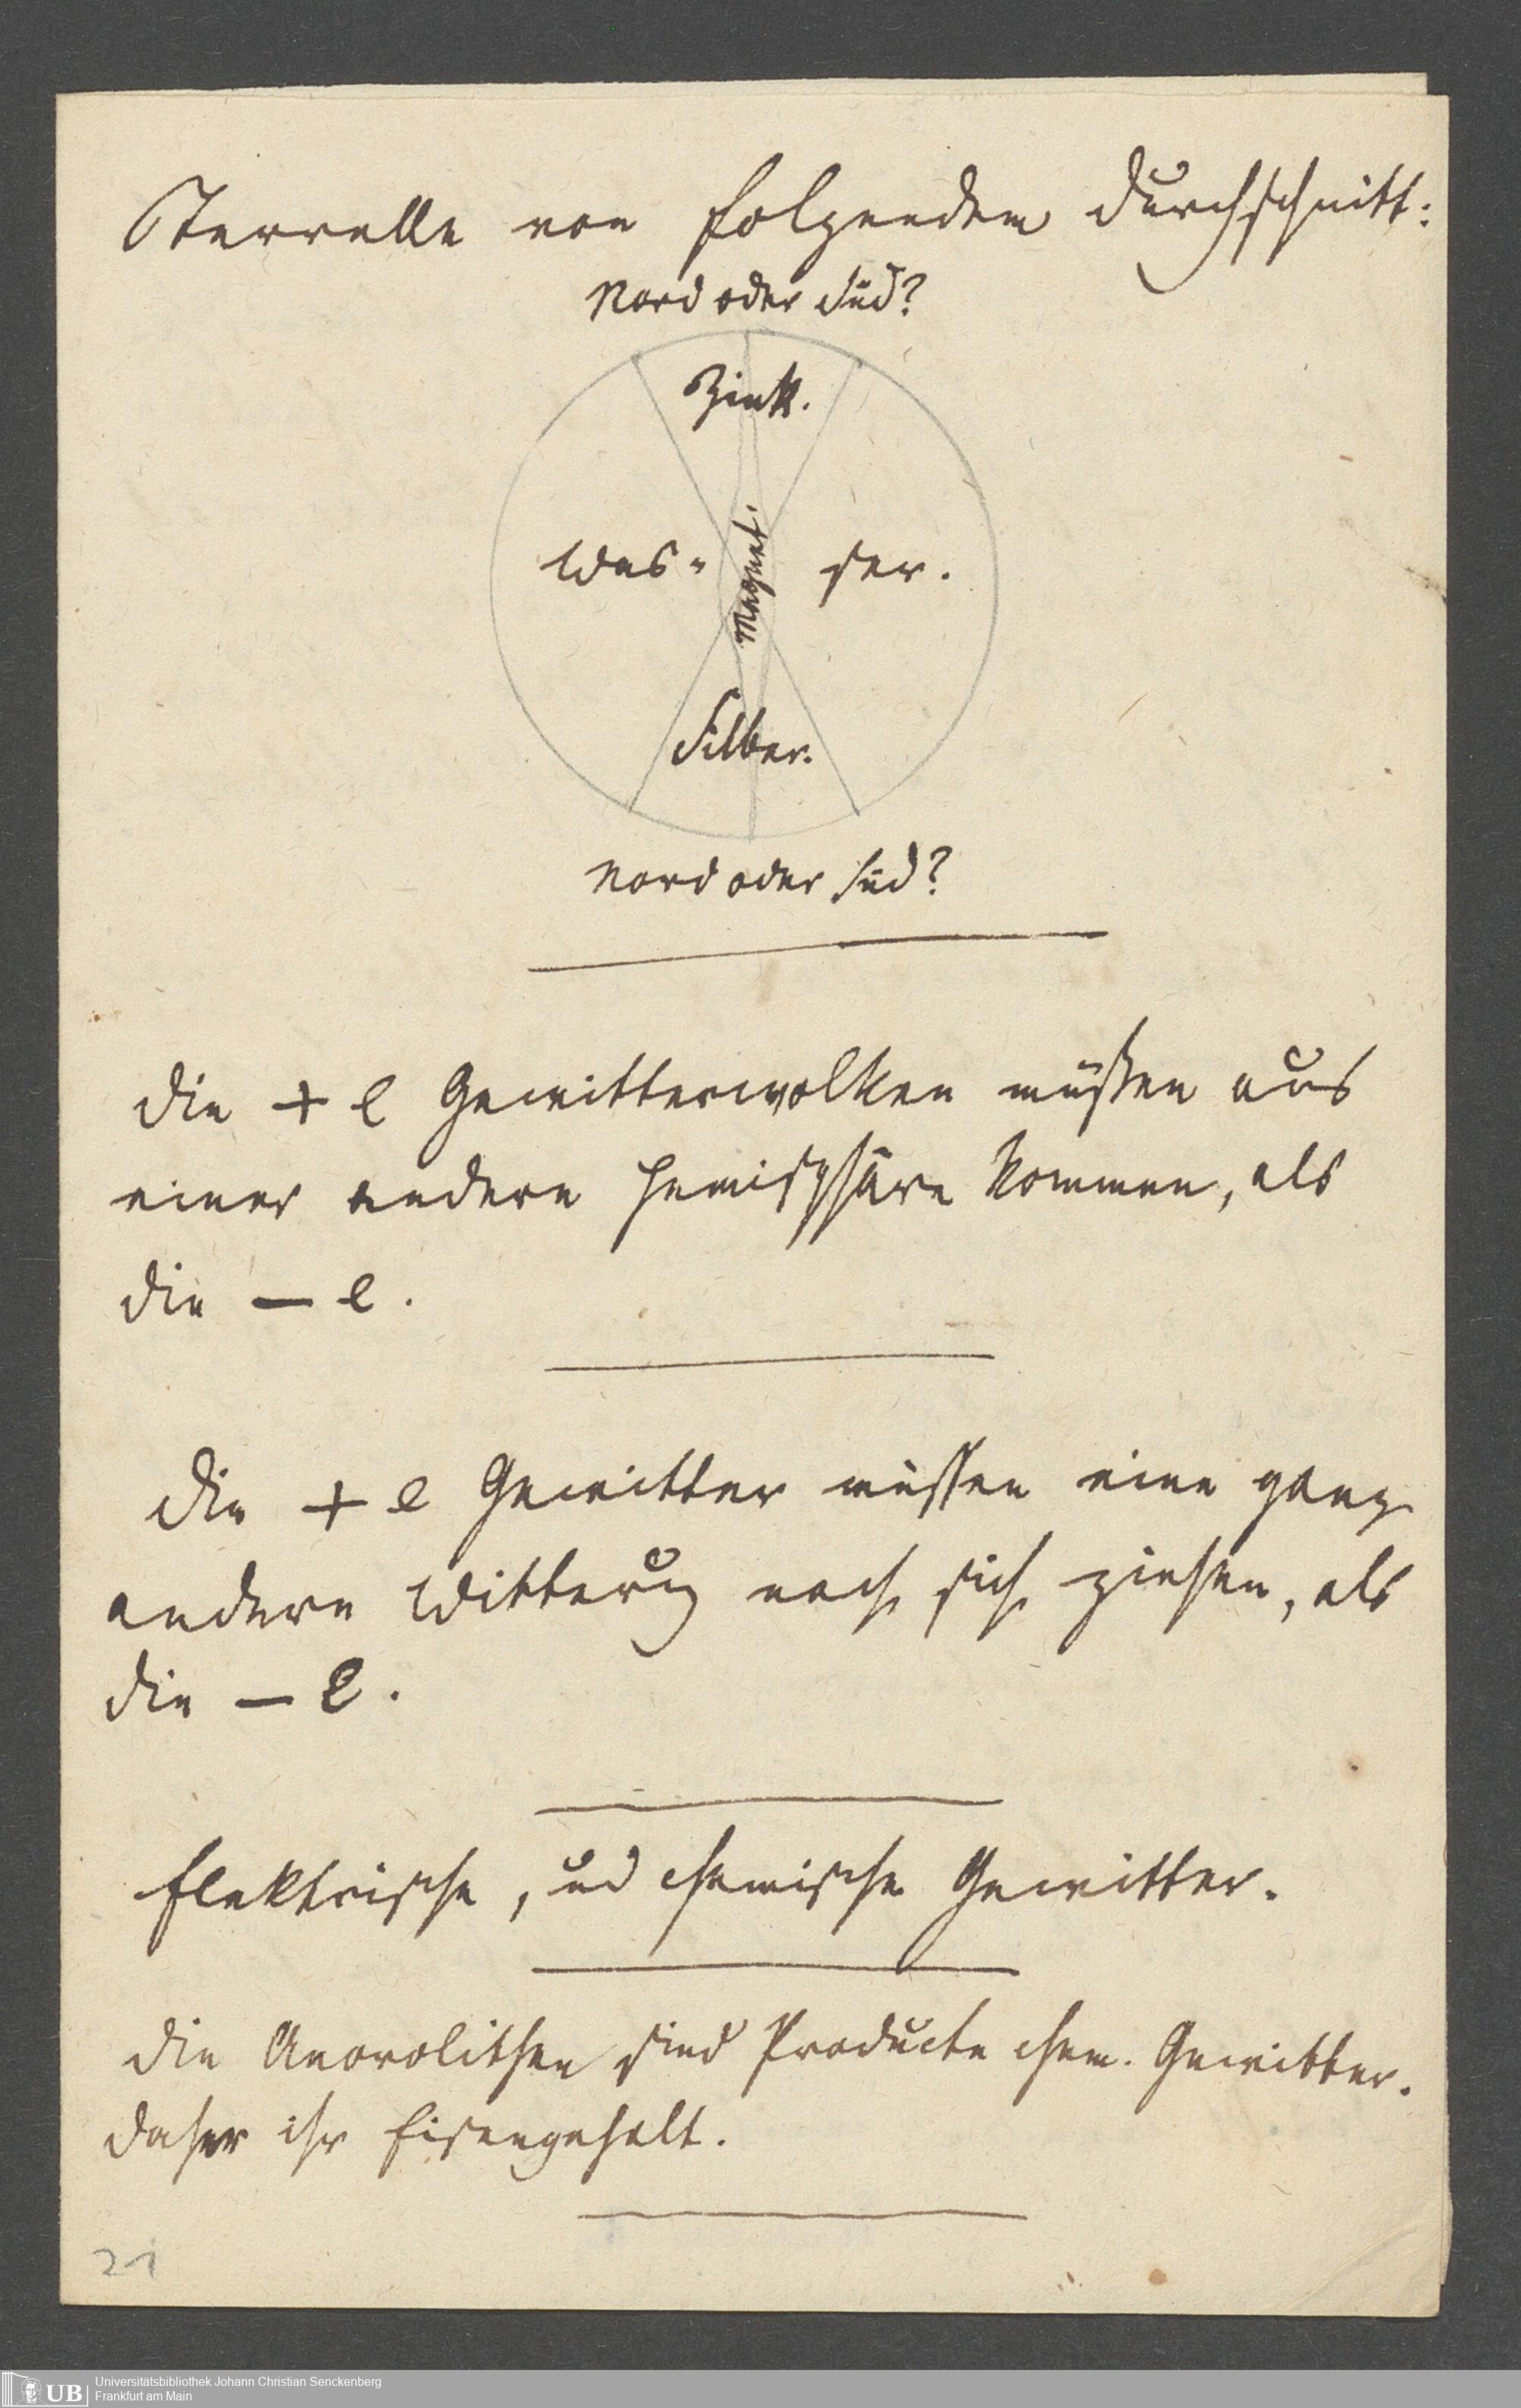 Terrelle von folgendem Durchschnitt:
Nord oder Süd?
Zink.
Was- Magnet. ser.
Silber.
Nord oder Süd?
Die + e Gewitterwolken müßen aus
einer andern Hemisphäre kommen, als
die — e.
Die + e Gewitter müssen eine ganz
andere Witterung nach sich ziehen, als
die — e.
Elektrische, und chemische Gewitter.
Die Aëorolithen sind Producte chem. Gewitter.
Daher ihr Eisengehalt.
21
UB Universitätsbibliothek Johann Christian Senckenberg
Frankfurt am Main